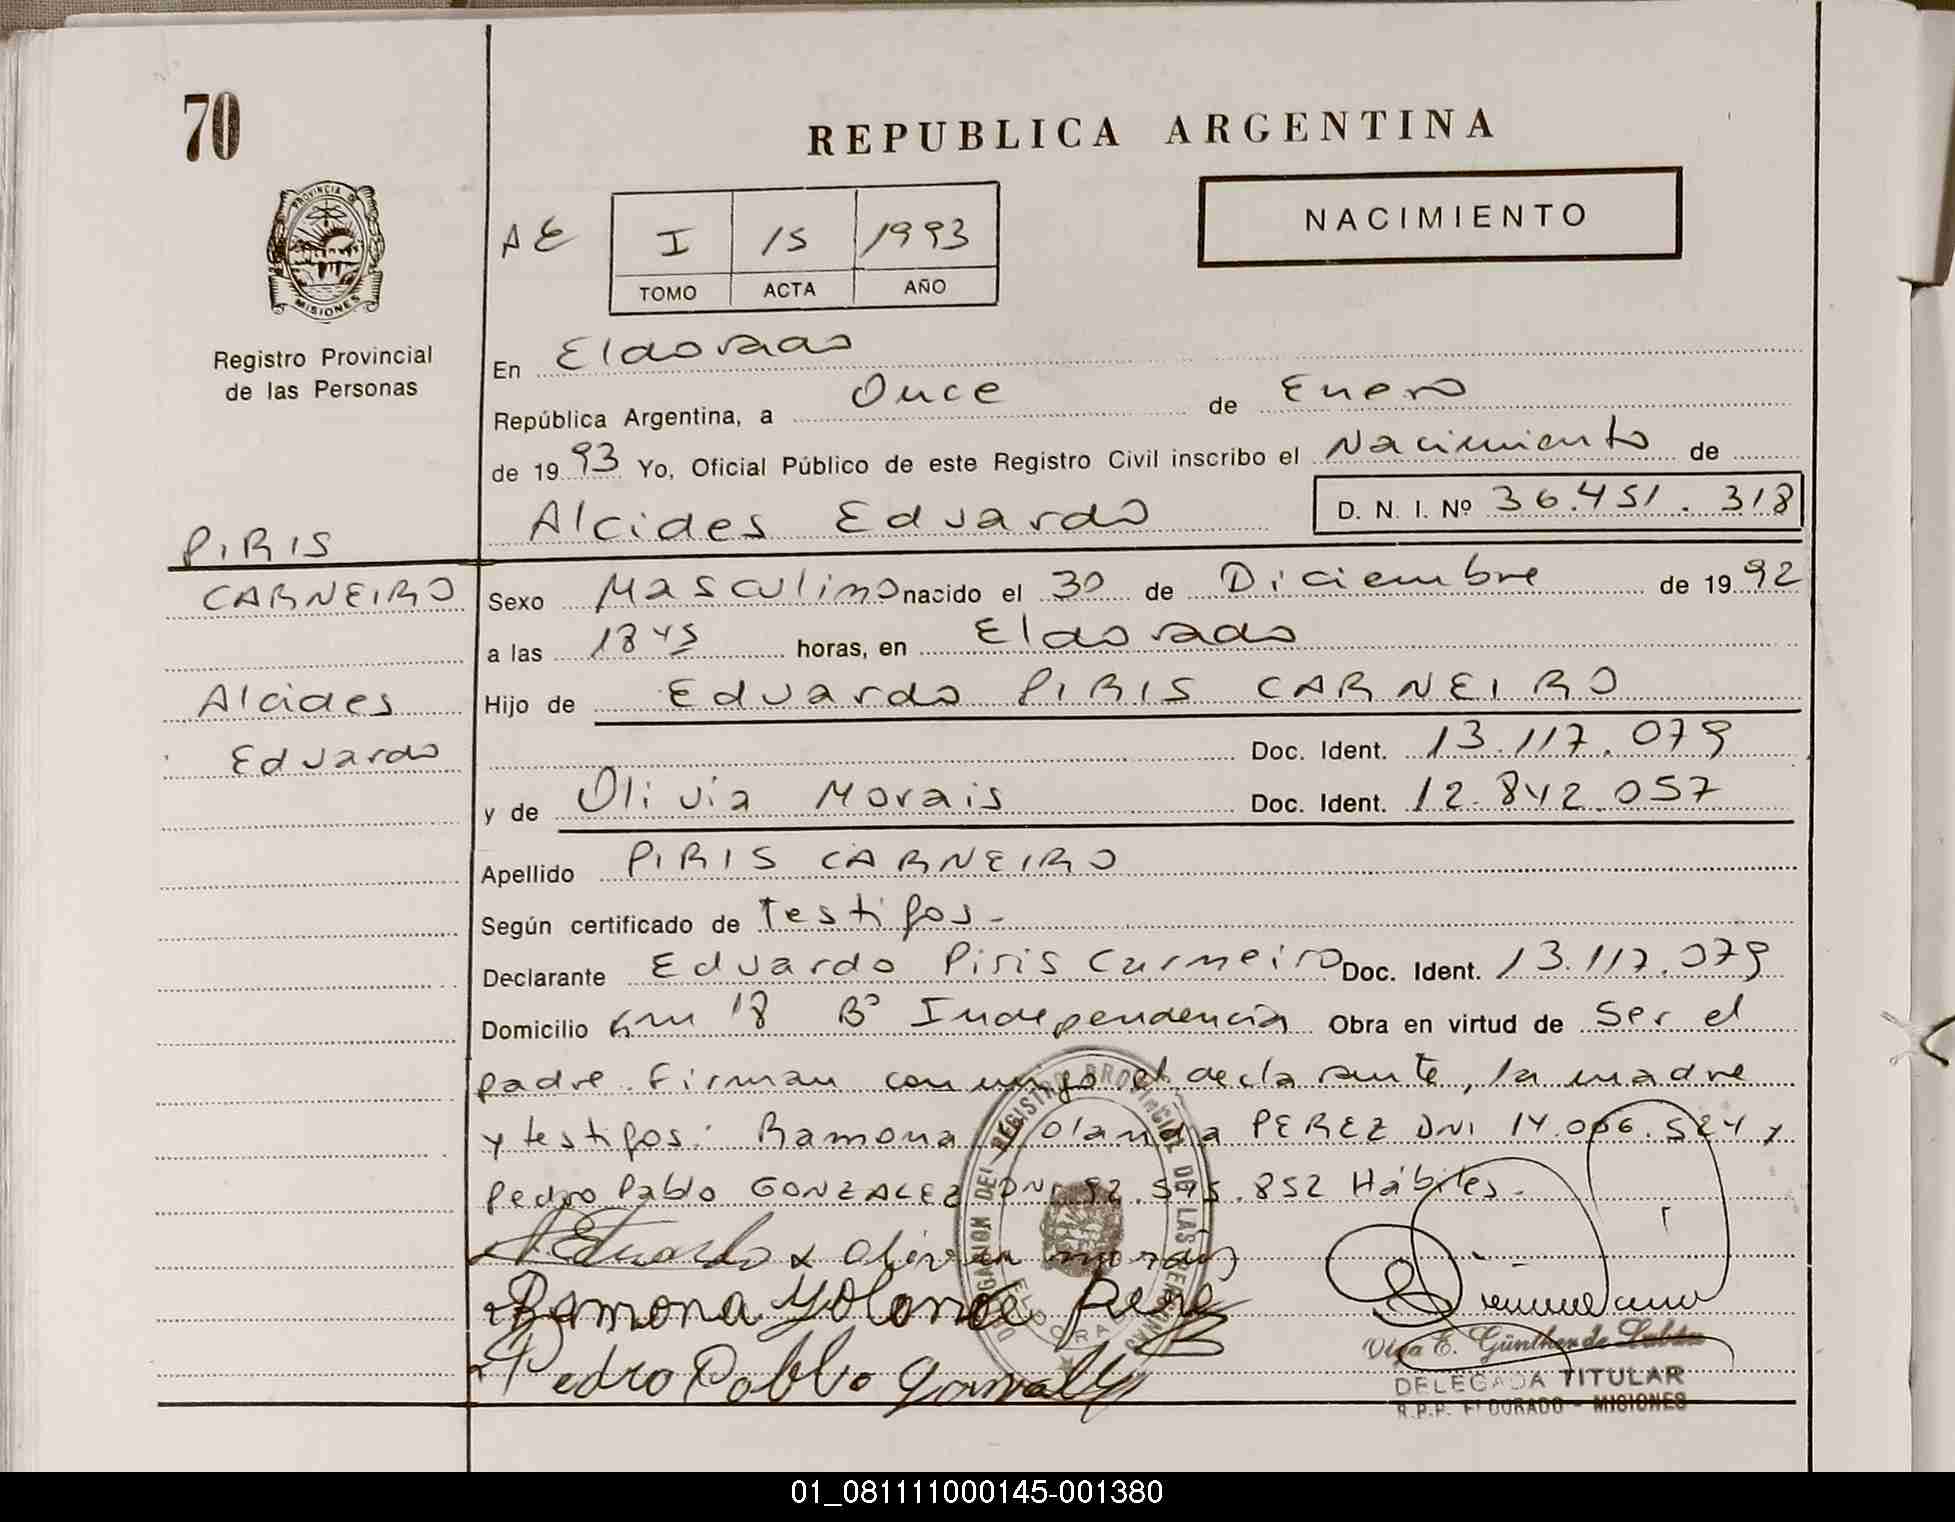 70
REPUBLICA ARGENTINA
PROVINCIA DE
MISIONES
Registro Provincial
de las Personas
NACIMIENTO
AE I 15 1993
TOMO ACTA AÑO
En Eldorado
República Argentina, a Once de Enero
de 1993 Yo, Oficial Público de este Registro Civil inscribo el Nacimiento de
Alcides Eduardo D. N. I. Nº 36.451.318
PIRIS
CARNEIRO
Alcides
Eduardo
Sexo Masculino nacido el 30 de Diciembre de 1992
a las 1845 horas, en Eldorado
Hijo de Eduardo PIRIS CARNEIRO
Doc. Ident. 13.117.079
y de Olivia Morais Doc. Ident. 12.842.057
Apellido PIRIS CARNEIRO
Según certificado de Testigos.-
Declarante Eduardo Piris Carneiro Doc. Ident. 13.117.079
Domicilio km 18 Bº Independencia Obra en virtud de ser el
padre. Firman conmigo el declarante, la madre
y testigos: Ramona Yolanda PEREZ DNI 14.006.524 y
Pedro Pablo GONZALEZ DNI 92.595.852 Hábiles.-
Eduardo Olivia morais
Ramona Yolanda Perez
Pedro Pablo Gonzalez
REGISTRO PROVINCIAL DE LAS PERSONAS
ELDORADO
Olga E. Günther de
DELEGADA TITULAR
R.P.P. ELDORADO - MISIONES
01_081111000145-001380